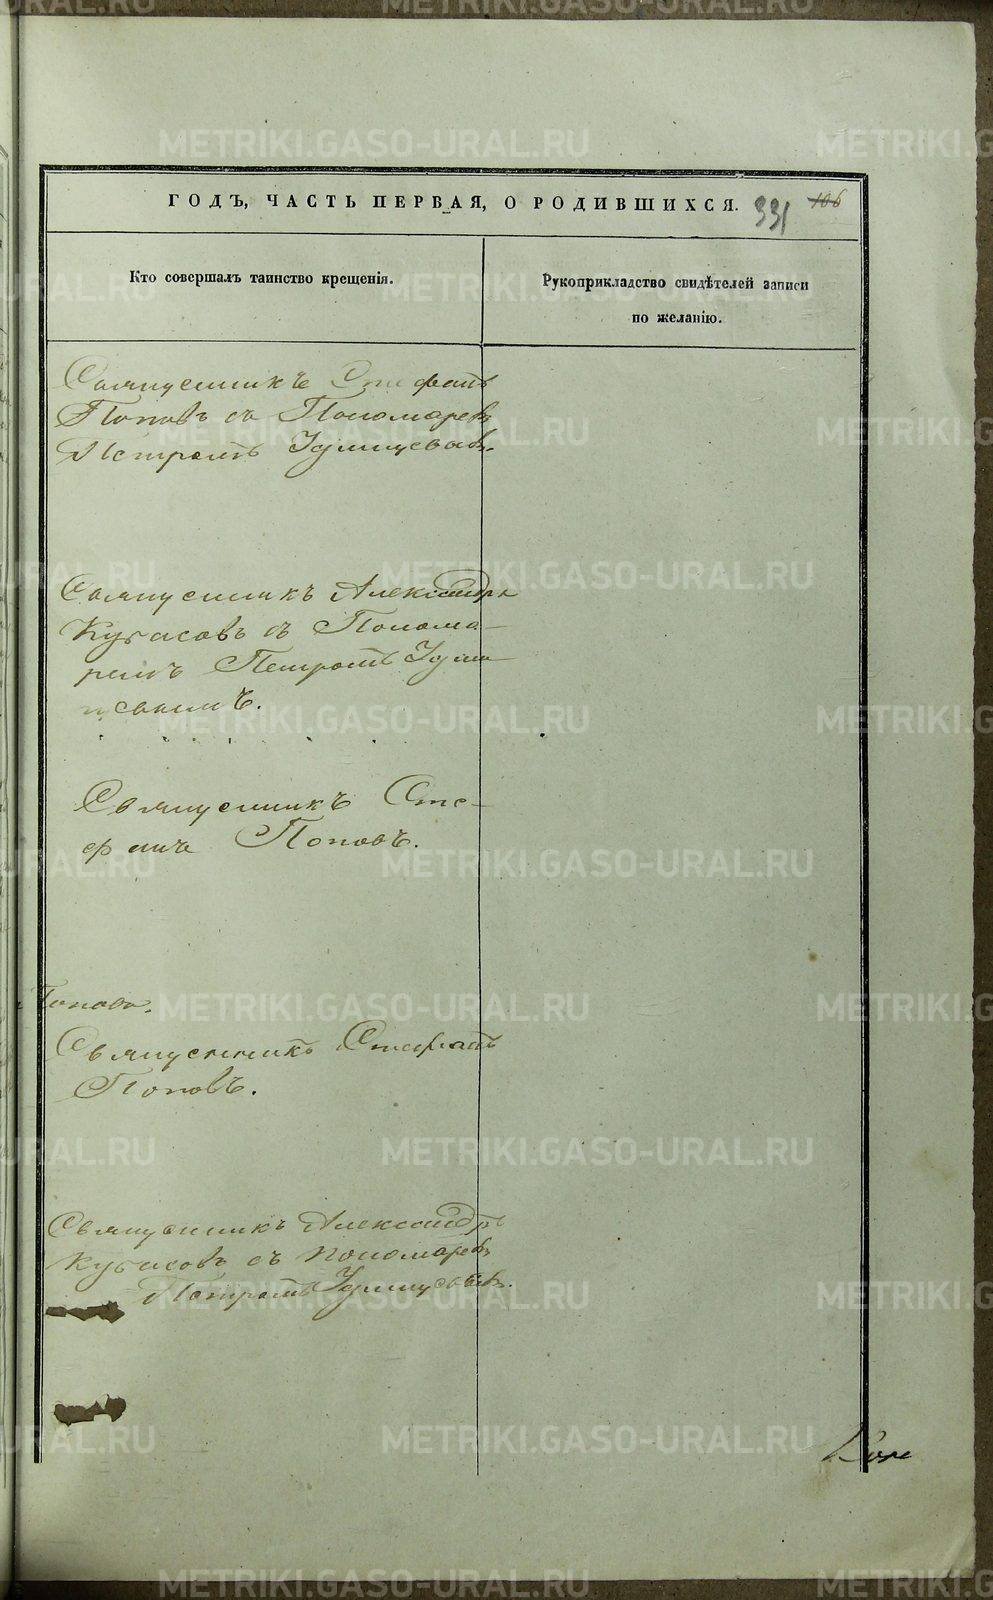 ГОДЪ, ЧАСТЬ ПЕРВАЯ, О РОДИВШИХСЯ.
331
106
Кто совершалъ таинство крещенія.
Рукоприкладство свидѣтелей записи
по желанію.
Священникъ Стефанъ
Поповъ съ Пономаремъ
Петромъ
Священникъ Александръ
Кубасовъ съ Понома-
ремъ Петромъ
Священникъ Сте-
фанъ Поповъ.
Попова.
Священникъ Стефанъ
Поповъ.
Священникъ Александръ
Кубасовъ съ пономаремъ
Петромъ
METRIKI.GASO-URAL.RU